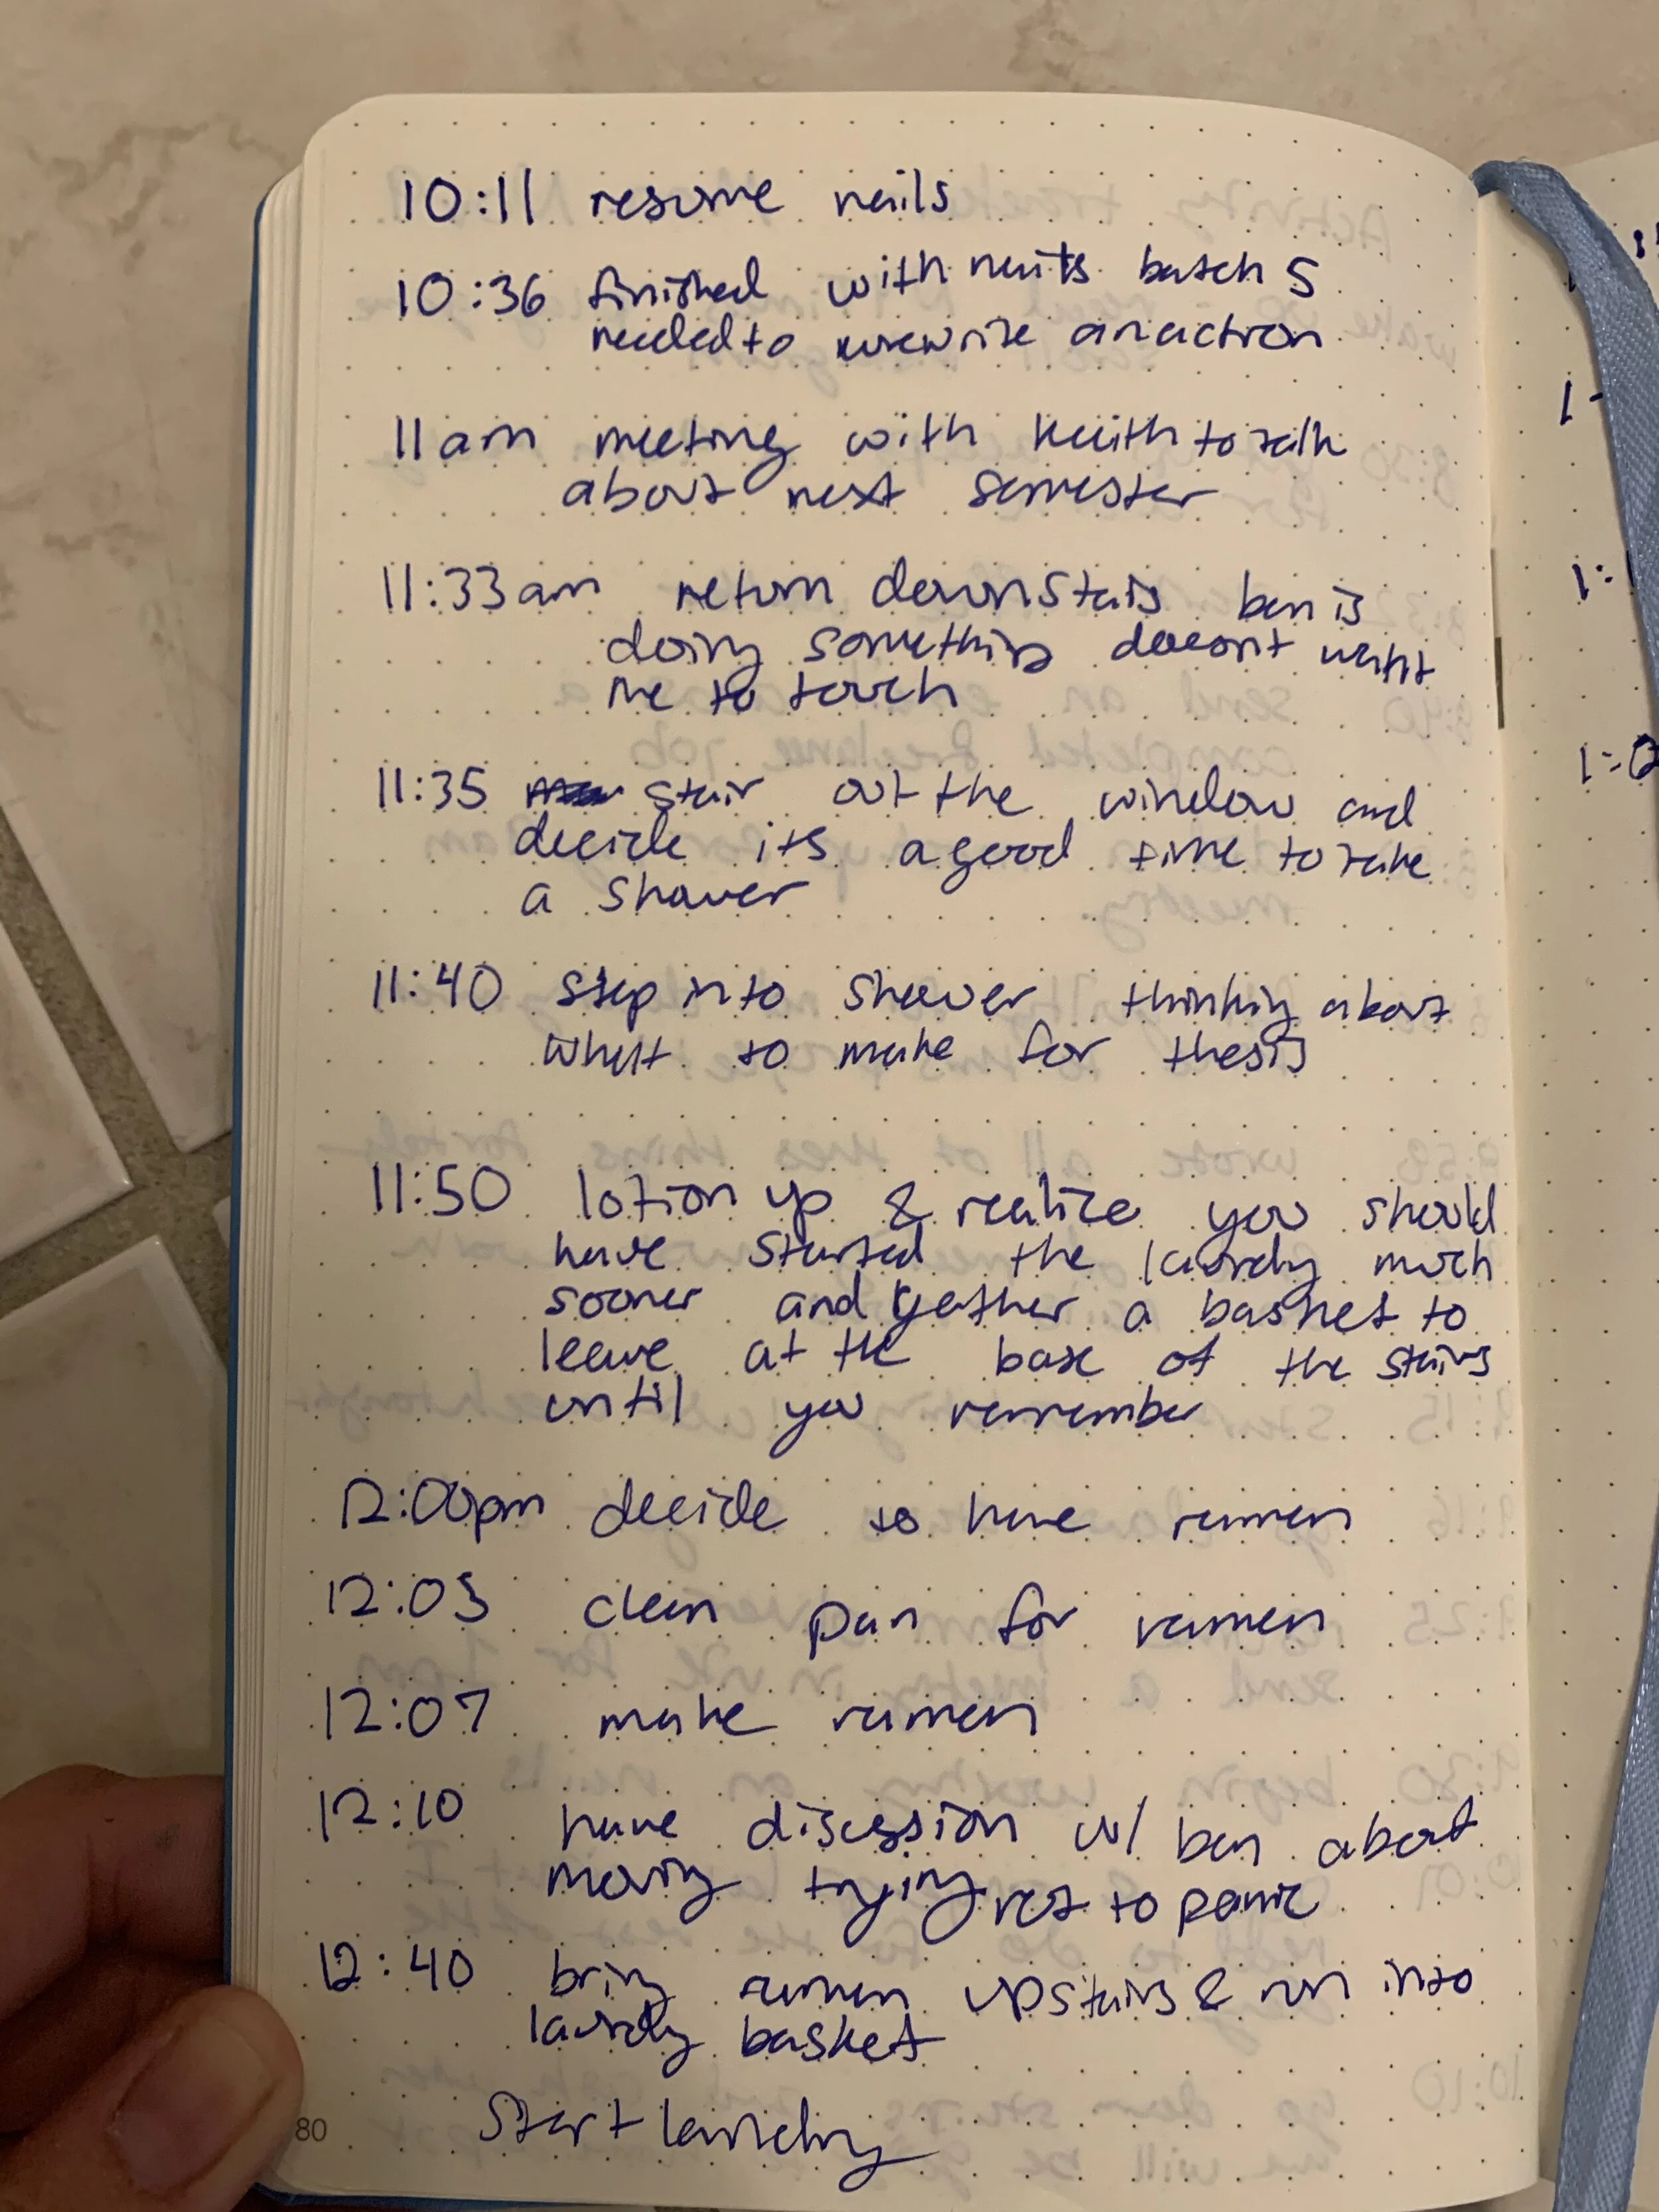 10:11 resume nails
10:36 finished with nails batch 5
needed to rewrite an action
11am meeting with Keith to talk
about next semester
11:33am return downstairs ben is
doing something doesn't want
me to touch
11:35 stair out the window and
decide its a good time to take
a shower
11:40 step into shower thinking about
what to make for thesis
11:50 lotion up & realize you should
have started the laundry much
sooner and gather a basket to
leave at the base of the stairs
until you remember
12:00pm decide to have ramen
12:03 clean pan for ramen
12:07 make ramen
12:10 have discussion w/ ben about
moving trying not to panic
12:40 bring ramen upstairs & run into
laundry basket
Start laundry
80